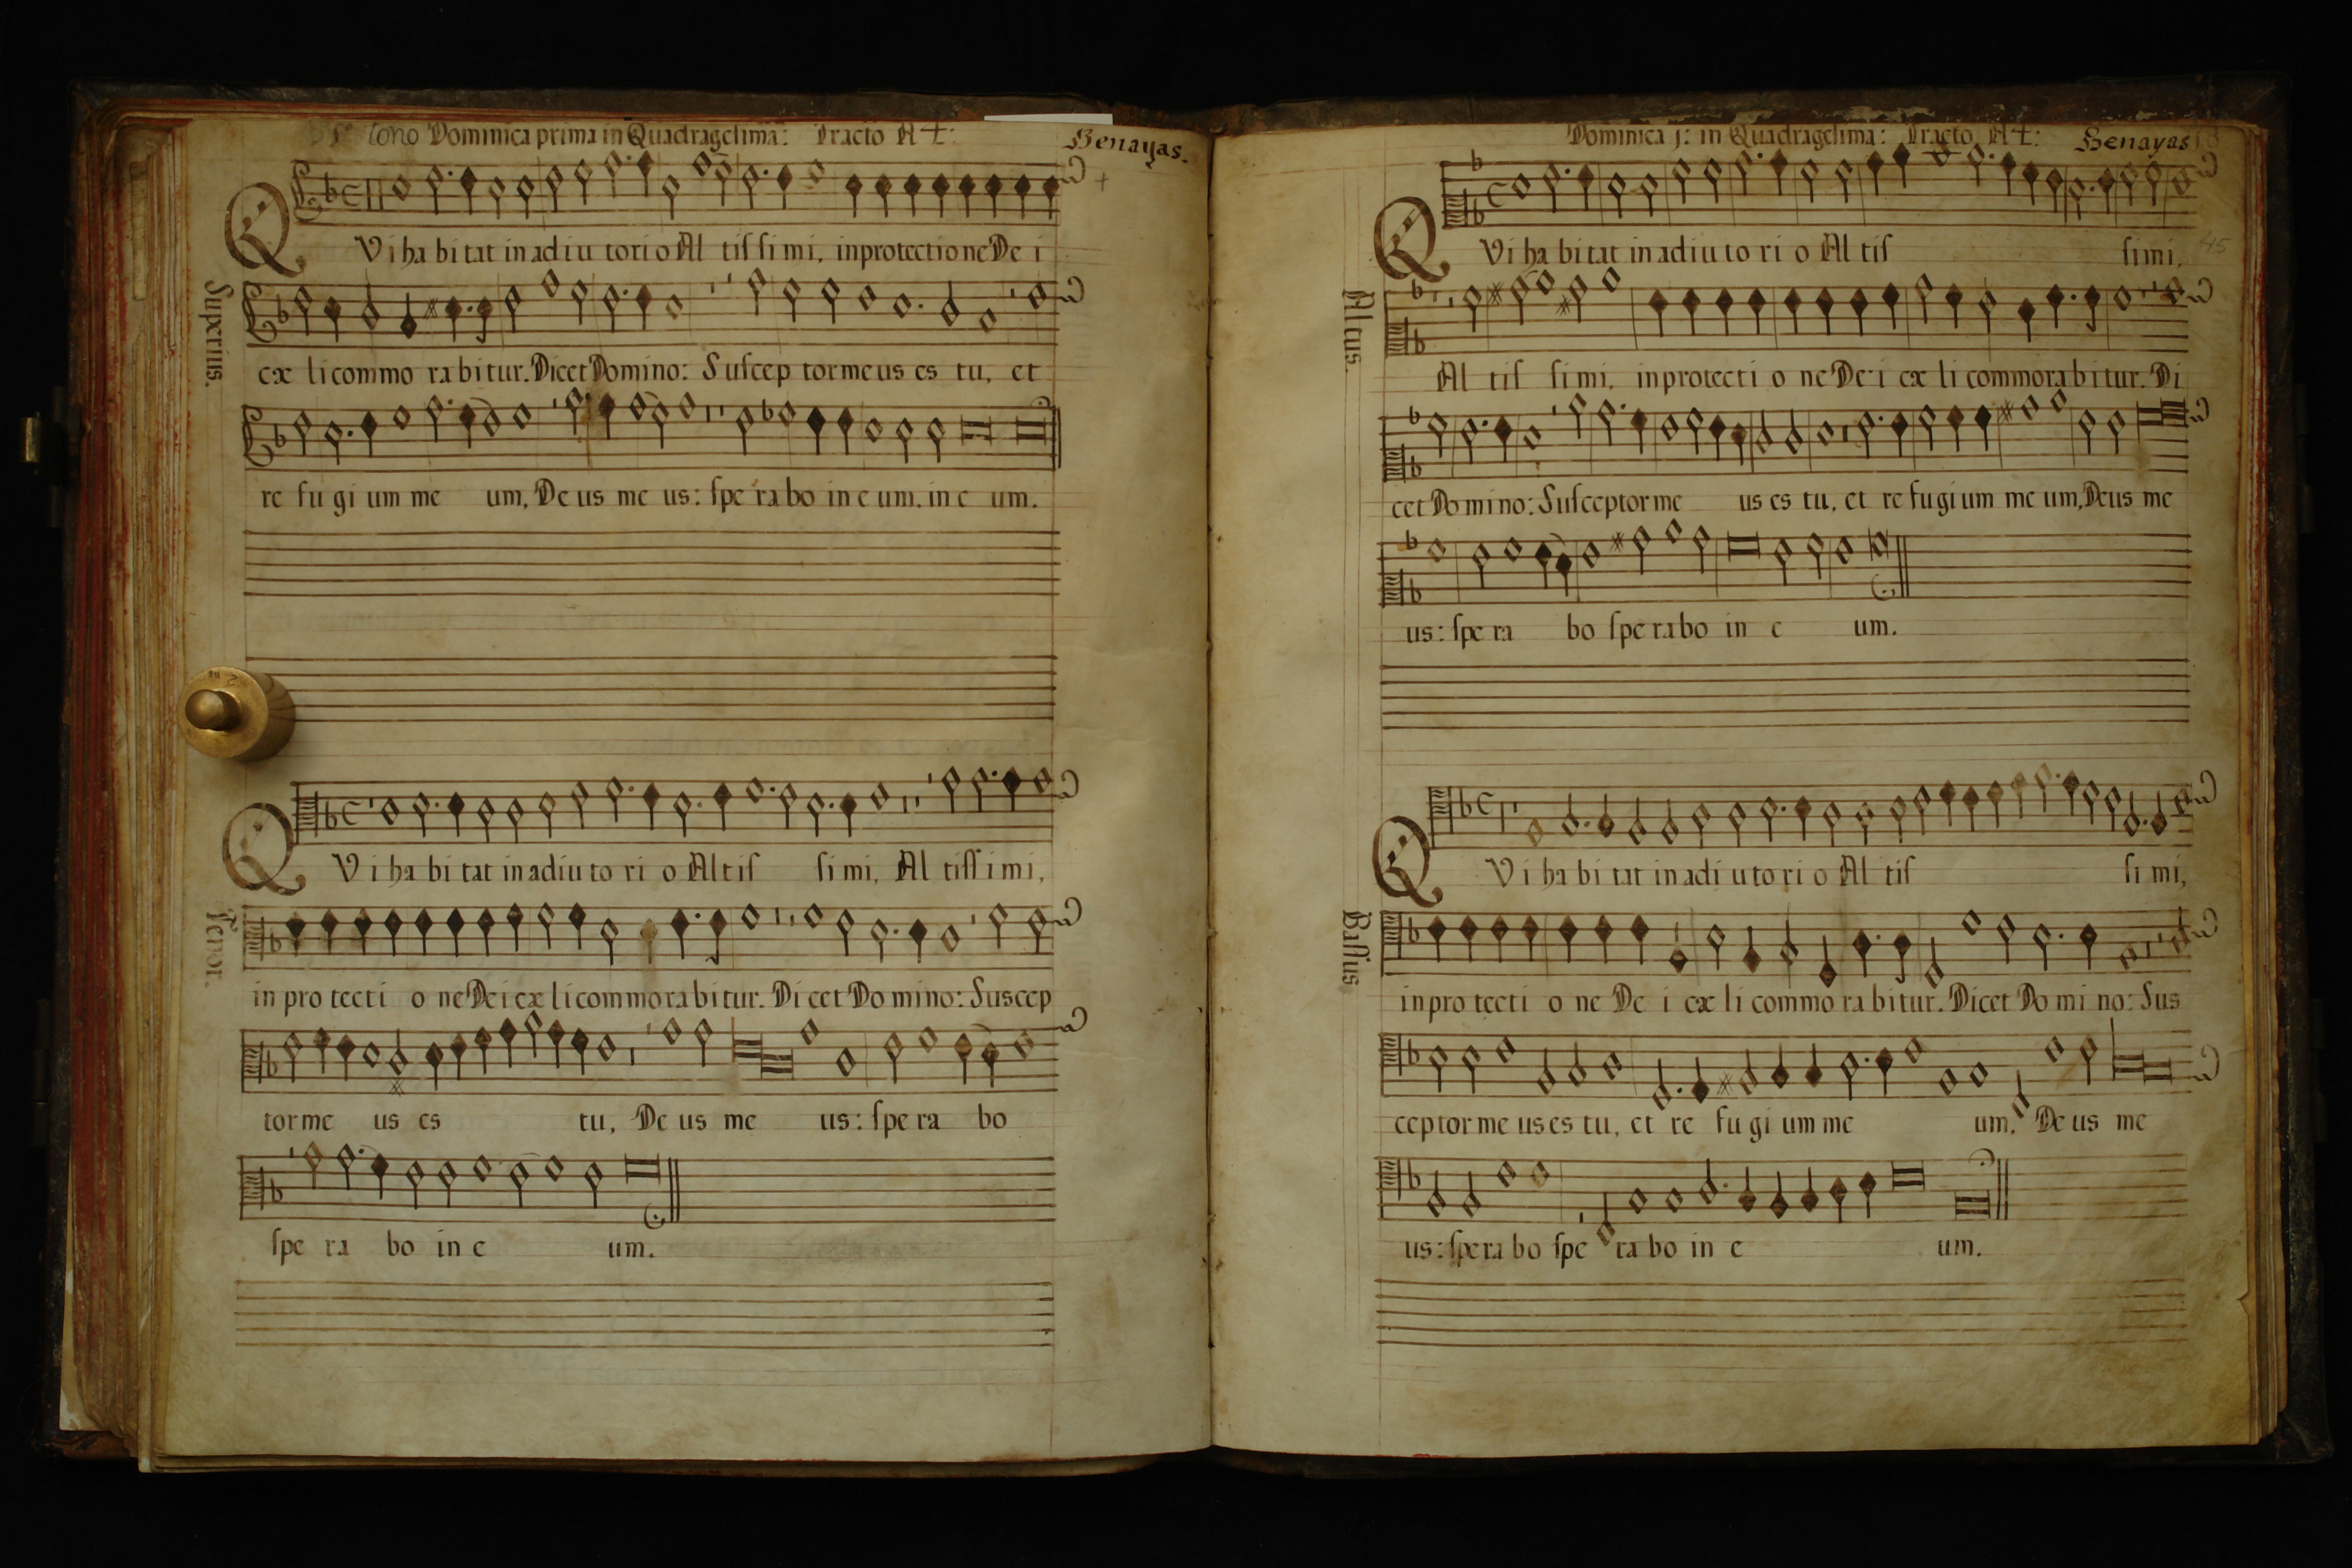 tono Dominica prima in Quadragesima: Tracto A 4:
Benayas.
QVi ha bi tat in adiu tori o Al tis si mi, in protectione De i
Superius.
cæ li commo ra bi tur. Dicet Domino: Suscep tor me us es tu, et
re fu gi um me um, De us me us: spe ra bo in e um. in e um.
QVi ha bi tat in adiu to ri o Al tis si mi, Al tissi mi,
Tenor.
in pro tecti o ne De i cæ li commo ra bi tur. Di cet Do mi no: Suscep
tor me us es tu, De us me us: spe ra bo
spe ra bo in e um.
Dominica j: in Quadragesima: Tracto A 4:
Benayas
45
QVi ha bi tat in adiu to ri o Al tis si mi,
Altus.
Al tis si mi, in protecti o ne De i cæ li commora bi tur. Di
cet Do mi no: Susceptor me us es tu, et re fu gi um me um, Deus me
us: spe ra bo spe ra bo in e um.
QVi ha bi tat in adi u to ri o Al tis si mi,
Bassus
in pro tecti o ne De i cæ li commo ra bi tur. Dicet Do mi no: Sus
ceptor me us es tu, et re fu gi um me um, De us me
us: spe ra bo spe ra bo in e um.